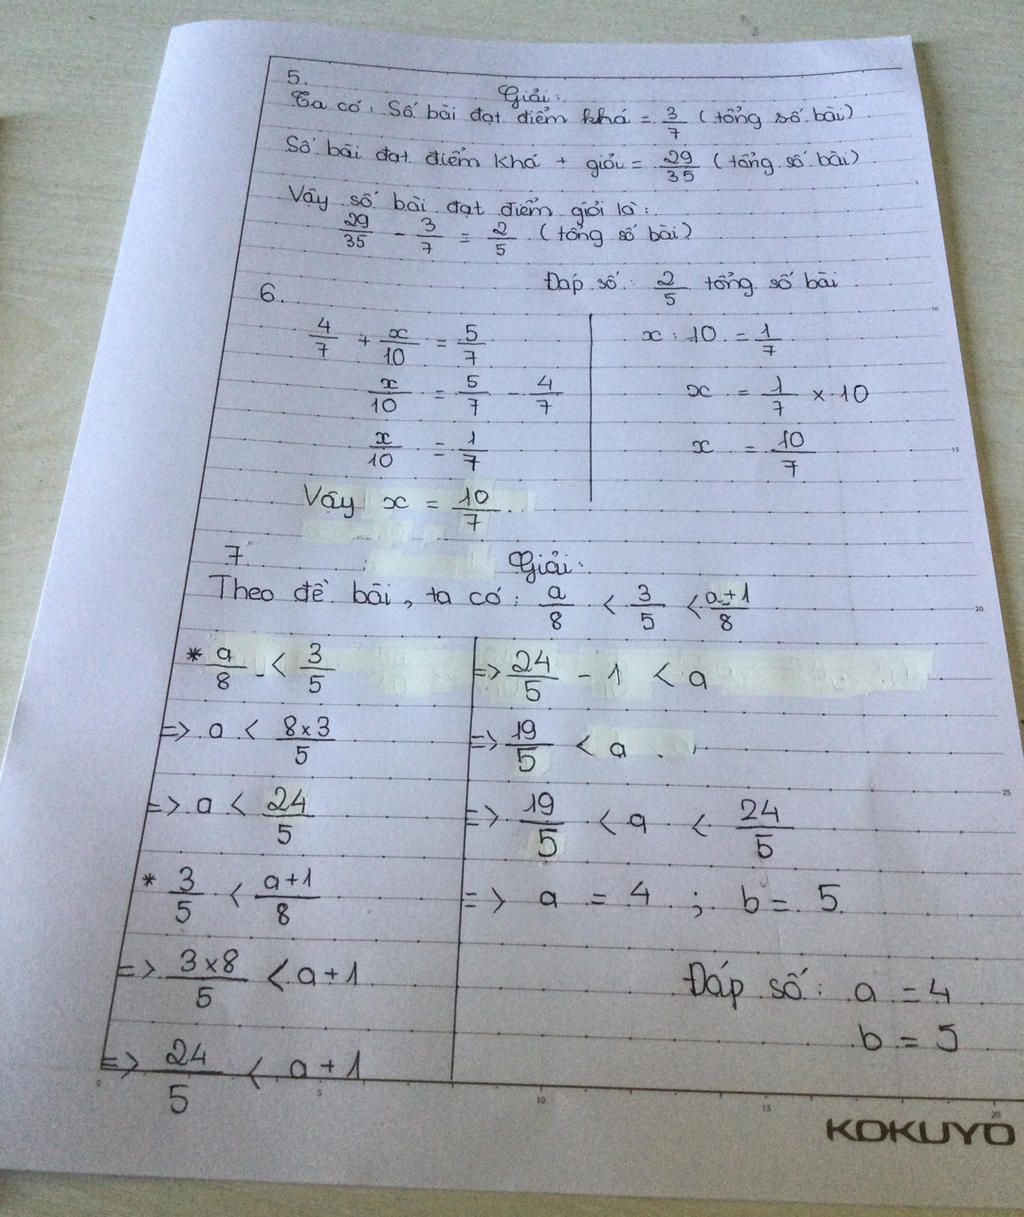 5.
Giải:
Ta có: Số bài đạt điểm khá = 3/7 (tổng số bài)
Số bài đạt điểm khá + giỏi = 29/35 (tổng số bài)
Vậy số bài đạt điểm giỏi là:
29/35 - 3/7 = 2/5 (tổng số bài)
Đáp số: 2/5 tổng số bài
6.
4/7 + x/10 = 5/7
x/10 = 5/7 - 4/7
x/10 = 1/7
Vậy x = 10/7
x : 10 = 1/7
x = 1/7 × 10
x = 10/7
7
Giải:
Theo đề bài, ta có: a/8 < 3/5 < a+1/8
* a/8 < 3/5
=> a < 8×3/5
=> a < 24/5
* 3/5 < a+1/8
=> 3×8/5 < a+1
=> 24/5 < a+1
=> 24/5 - 1 < a
=> 19/5 < a
=> 19/5 < a < 24/5
=> a = 4 ; b = 5
Đáp số: a = 4
b = 5
0 5 10 15 20
10
15
20
25
KOKUYO